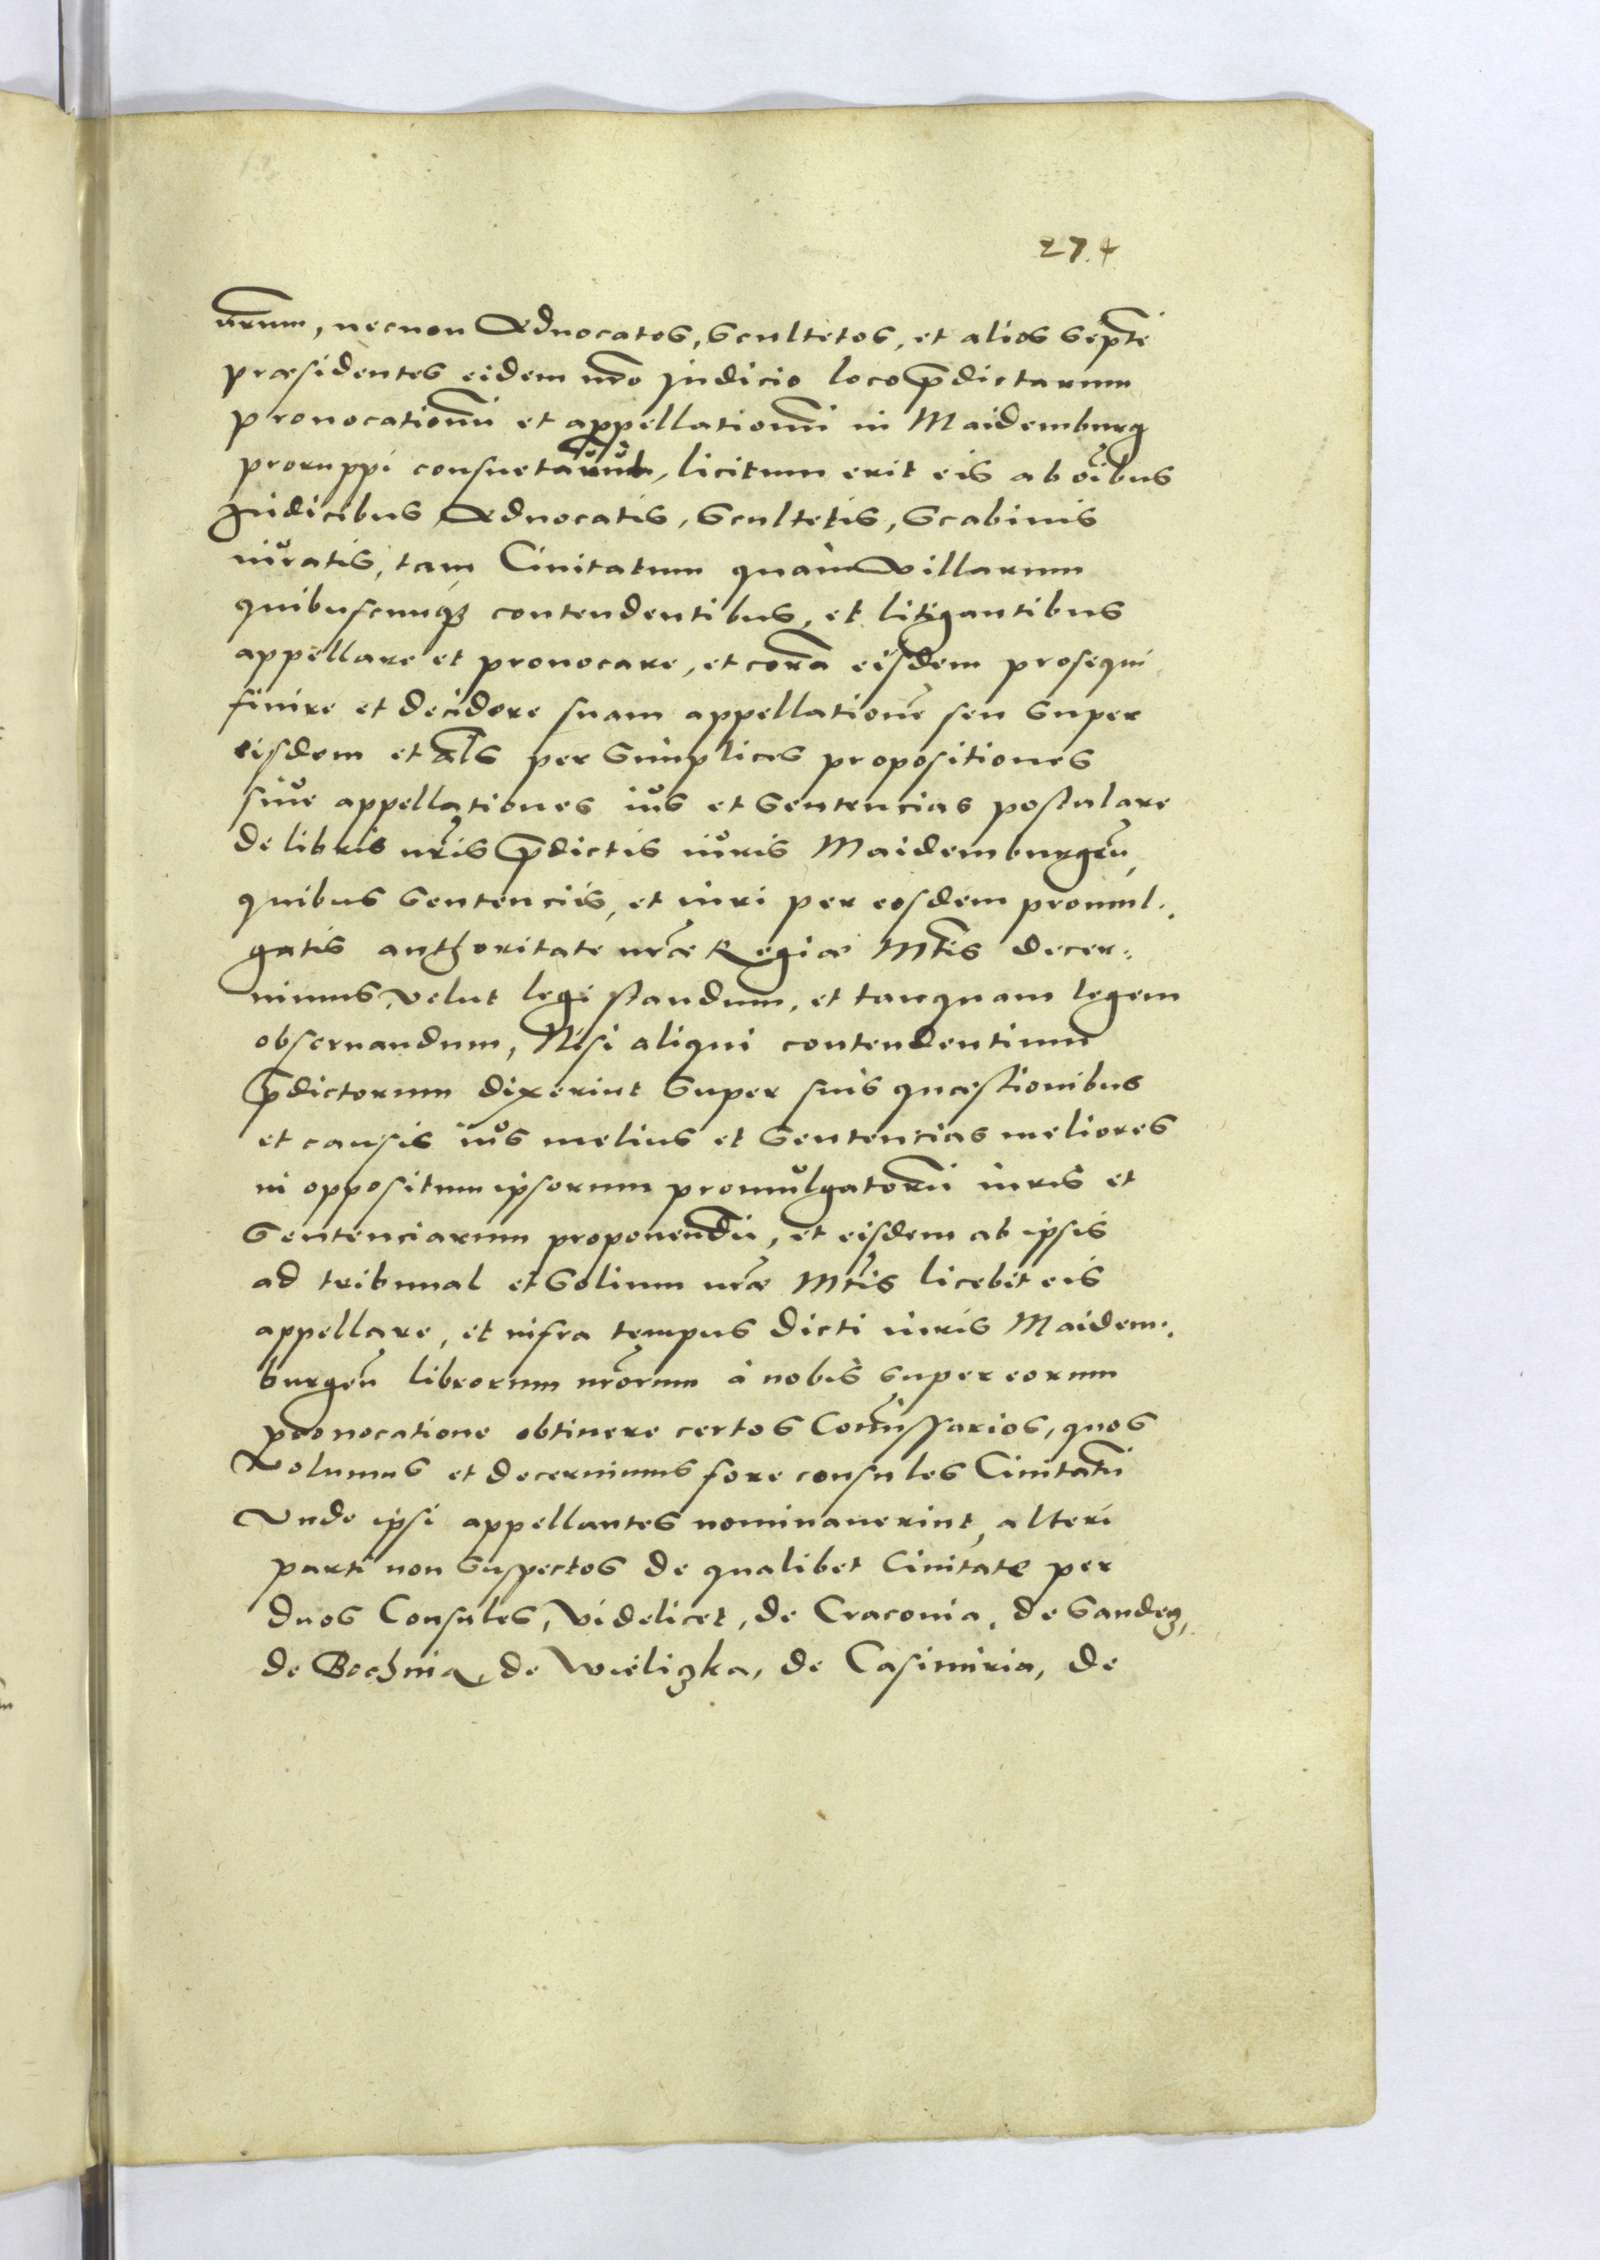 274
nr̃um, necnon Aduocatos, Scultetos, et alios Septẽ
præsidentes eidem nr̃o Judicio loco p̃dictarum
prouocationũ et appellationũ in Maidemburg
proruppi consuetarum, licitum erit eis ab oĩbus
Judicibus Aduocatis, Scultetis, Scabinis
iuratis, tam Ciuitatum quàm Villarum
quibuscunq̃ contendentibus, et litigantibus
appellare et prouocare, et corã eisdem prosequi
finire et decidere suam appellationẽ seu Super
eisdem et als̃ per Simplices propositiones
siue appellationes ius et Sentencias postulare
de libris nr̃is p̃dictis iuris Maidemburgeñ,
quibus Sentenciis, et iuri per eosdem promul:
gatis authoritate nr̃æ Regiæ Mt̃is decer:
nimus, velut legi standum, et tanquam legem
obseruandum, Nisi aliqui contendentium
p̃dictorum dixerint Super suis quæstionibus
et causis ius melius et Sentencias meliores
in oppositum ipsorum promulgatorũ iuris et
Sentenciarum proponendũ, et eisdem ab ipsis
ad tribunal et Solium nr̃æ Mt̃is licebit eis
appellare, et infra tempus dicti iuris Maidem:
burgeñ librorum nr̃orum à nobis super eorum
prouocatione obtinere certos Com̃issarios, quos
Volumus et decernimus fore consules Ciuitatũ
Vnde ipsi appellantes nominauerint, alteri
parti non Suspectos de qualibet Ciuitate per
duos Consules, Videlicet, de Cracouia, de Sandecz,
de Bochnia, de Wieliczka, de Casimiria, de